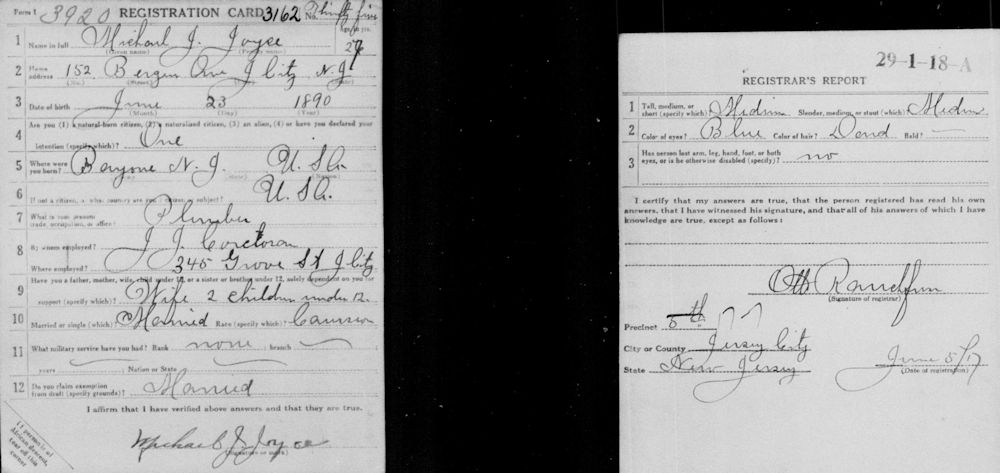 Form 1 3920 REGISTRATION CARD 3162 No. Thirty five
1 Name in full Michael J. Joyce Age, in yrs. 27
(Given name) (Family name)
2 Home address 152 Bergen Ave J City N.J
(No.) (Street)
3 Date of birth June 23 1890
(Month) (Day) (Year)
4 Are you (1) a natural-born citizen, (2) a naturalized citizen, (3) an alien, (4) or have you declared your
intention (specify which)? One
5 Where were you born? Bayonne N. J. U. S A.
6 If not a citizen, of what country are you a citizen or subject? U. S A.
7 What is your present trade, occupation, or office? Plumber
8 By whom employed? J. J. Corcoran
Where employed? 345 Grove St J City
9 Have you a father, mother, wife, child under 12, or a sister or brother under 12, solely dependent on you for
support (specify which)? Wife 2 children under 12.
10 Married or single (which)? Married Race (specify which)?
11 What military service have you had? Rank none ; branch —
years ; Nation or State
12 Do you claim exemption from draft (specify grounds)? Married
I affirm that I have verified above answers and that they are true.
Michael J Joyce
(Signature or mark)
If person is of
African descent,
tear off this
corner
29-1-18-A
REGISTRAR'S REPORT
1 Tall, medium, or short (specify which)? Medium Slender, medium, or stout (which)? Medium
2 Color of eyes? Blue Color of hair? Bald? —
3 Has person lost arm, leg, hand, foot, or both
eyes, or is he otherwise disabled (specify)? no
I certify that my answers are true, that the person registered has read his own
answers, that I have witnessed his signature, and that all of his answers of which I have
knowledge are true, except as follows:
(Signature of registrar)
Precinct 8th
City or County Jersey City
State New Jersey June 5/17
(Date of registration)